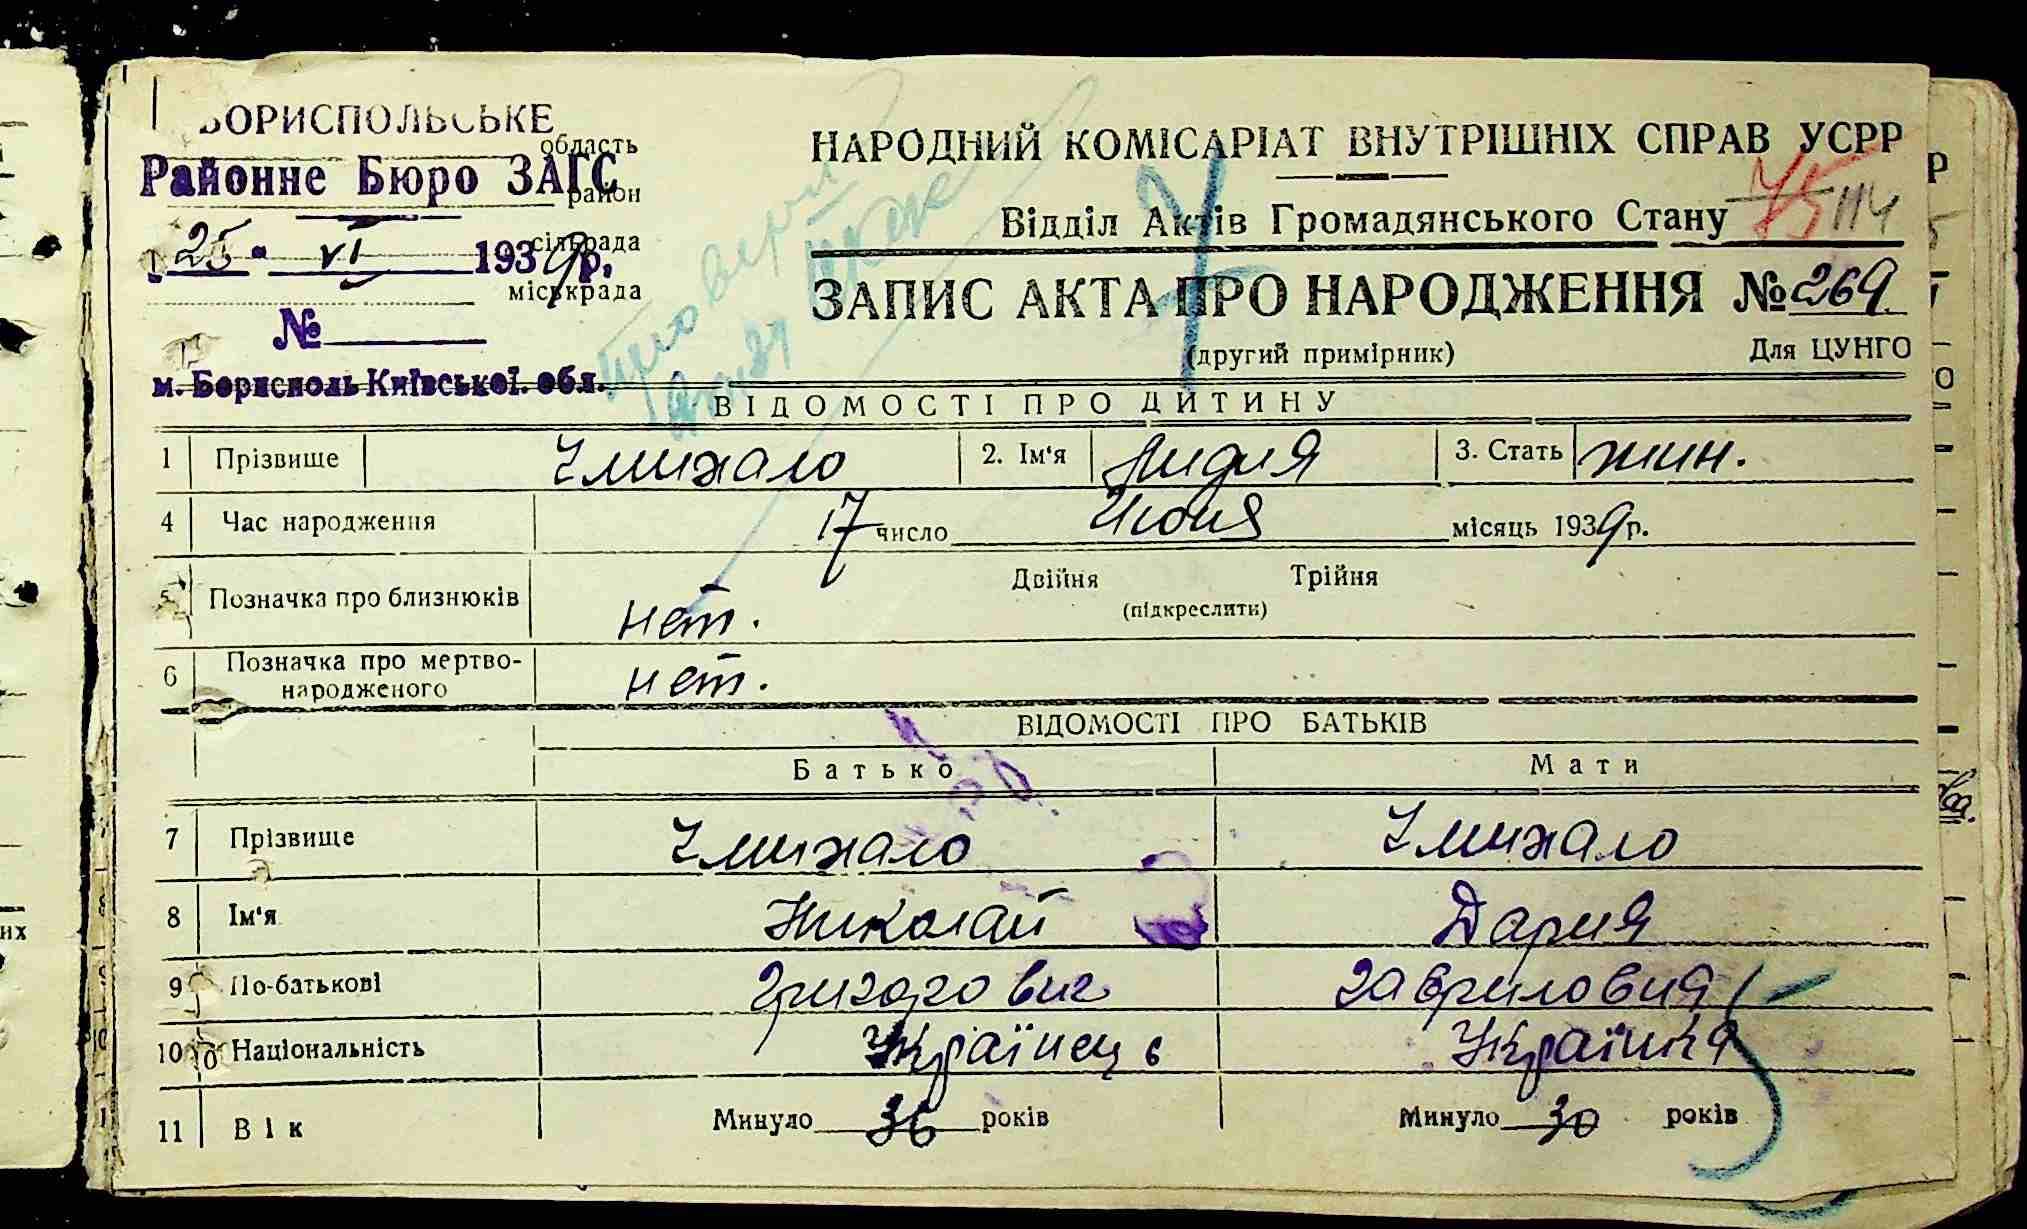 БОРИСПОЛЬСЬКЕ
область
Районне Бюро ЗАГС
район
25 " VI 1939 р.
сільрада
міськрада
№
м. Борисполь Київської обл.
НАРОДНИЙ КОМІСАРІАТ ВНУТРІШНІХ СПРАВ УСРР
Відділ Актів Громадянського Стану 75 114
ЗАПИС АКТА ПРО НАРОДЖЕННЯ № 269
(другий примірник) Для ЦУНГО
ВІДОМОСТІ ПРО ДИТИНУ
1 Прізвище Чмихало 2. Ім'я Лидия 3. Стать жин.
4 Час народження 17 число Июня місяць 1939 р.
5 Позначка про близнюків нет. Двійня Трійня
(підкреслити)
6 Позначка про мертво-
народженого нет.
ВІДОМОСТІ ПРО БАТЬКІВ
Батько Мати
7 Прізвище Чмихало Чмихало
8 Ім'я Николай Дария
9 По-батькові Григорович Гавриловия
10 Національність Українець Українка
11 Вік Минуло 36 років Минуло 30 років